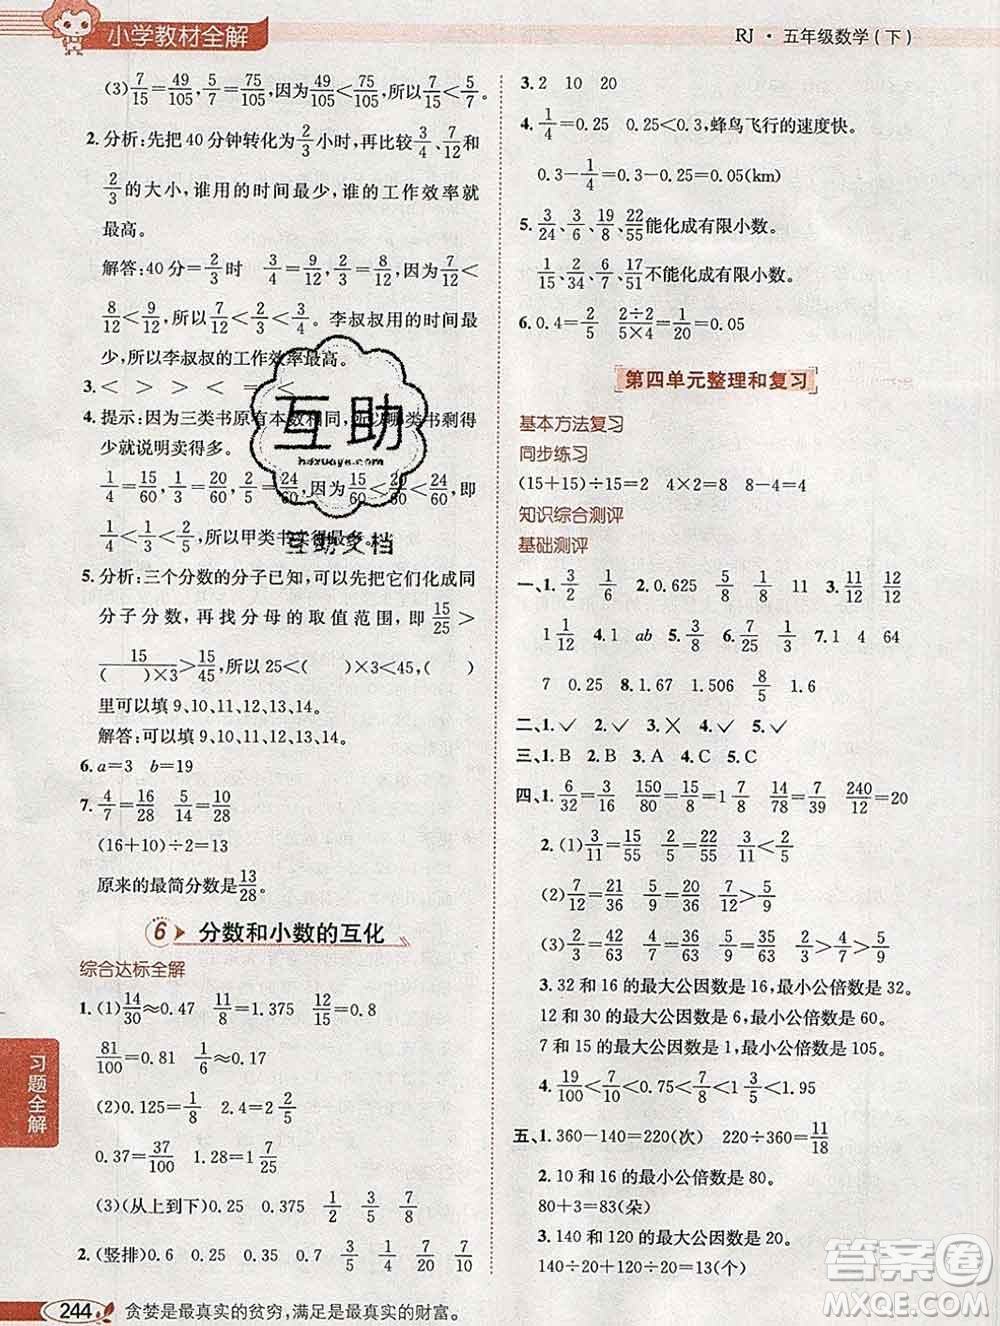 小学教材全解
RJ · 五年级数学(下)
(3) 7/15=49/105, 5/7=75/105, 因为49/105<75/105, 所以7/15<5/7。
2. 分析:先把40分钟转化为2/3小时,再比较3/4、7/12和
2/3的大小,谁用的时间最少,谁的工作效率就
最高。
解答:40分=2/3时 3/4=9/12 2/3=8/12, 因为7/12<
8/12<9/12, 所以7/12<2/3<3/4。李叔叔用的时间最
少,所以李叔叔的工作效率最高。
3. < > > > < = <
4. 提示:因为三类书原有本数相同,所以哪类书剩得
少就说明卖得多。
1/4=15/60, 1/3=20/60, 2/5=24/60, 因为15/60<20/60<24/60, 即
1/4<1/3<2/5, 所以甲类书卖得最多。
5. 分析:三个分数的分子已知,可以先把它们化成同
分子分数,再找分母的取值范围,即15/25>
15/(( )×3)>15/45, 所以25<( )×3<45, ( )
里可以填9、10、11、12、13、14。
解答:可以填9、10、11、12、13、14。
6. a=3 b=19
7. 4/7=16/28 5/14=10/28
(16+10)÷2=13
原来的最简分数是13/28。
6 分数和小数的互化
综合达标全解
1. (1)14/30≈0.47 11/8=1.375 12/15=0.8
81/100=0.81 1/6≈0.17
(2)0.125=1/8 2.4=2 2/5
0.37=37/100 1.28=1 7/25
(3)(从上到下)0.25 0.375 3/4 7/8
2. (竖排)0.6 0.25 0.35 0.44 2/5 7/8
习题全解
244 贪婪是最真实的贫穷,满足是最真实的财富。
3. 2 10 20
4. 1/4=0.25 0.25<0.3, 蜂鸟飞行的速度快。
0.3-1/4=0.3-0.25=0.05(km)
5. 3/24、3/6、19/8、22/55能化成有限小数。
11/30、2/34、6/36、17/51不能化成有限小数。
6. 0.4=2/5 (2÷2)/(5×4)=1/20 1/20=0.05
第四单元整理和复习
基本方法复习
同步练习
(15+15)÷15=2 4×2=8 8÷2=4
知识综合测评
基础测评
一、1. 3/2 6 2. 0.625 5/8 1/8 11 3. 11/12 12/12
1 1/12 4. 1 ab 5. 3/8 6. 7/25 1/3 7. 1 4 64
7 0.25 8. 1.67 1.506 8/5 1.6
二、1. ✓ 2. ✓ 3. ✗ 4. ✓ 5. ✓
三、1. B 2. B 3. A 4. C 5. C
四、1. 6/32=3/16 150/80=15/8=1 7/8 14/78=7/39 240/12=20
2. (1)3/11=15/55 2/5=22/55 3/11<2/5
(2)7/12=21/36 17/18=34/36 7/12<17/18
(3)2/3=40/60 11/20=33/60 5/12=25/60 2/3>11/20>5/12
3. 32和16的最大公因数是16, 最小公倍数是32。
12和30的最大公因数是6, 最小公倍数是60。
7和15的最大公因数是1, 最小公倍数是105。
4. 19/100<7/30<1/4<2/5<7/15
五、1. 360-140=220(次) 220÷360=11/18
2. 10和16的最小公倍数是80。
80+3=83(朵)
3. 140和120的最大公因数是20。
140÷20+120÷20=7+6=13(个)
互助
hdzuoye.com
互助文档
答案圈
MXQE.COM